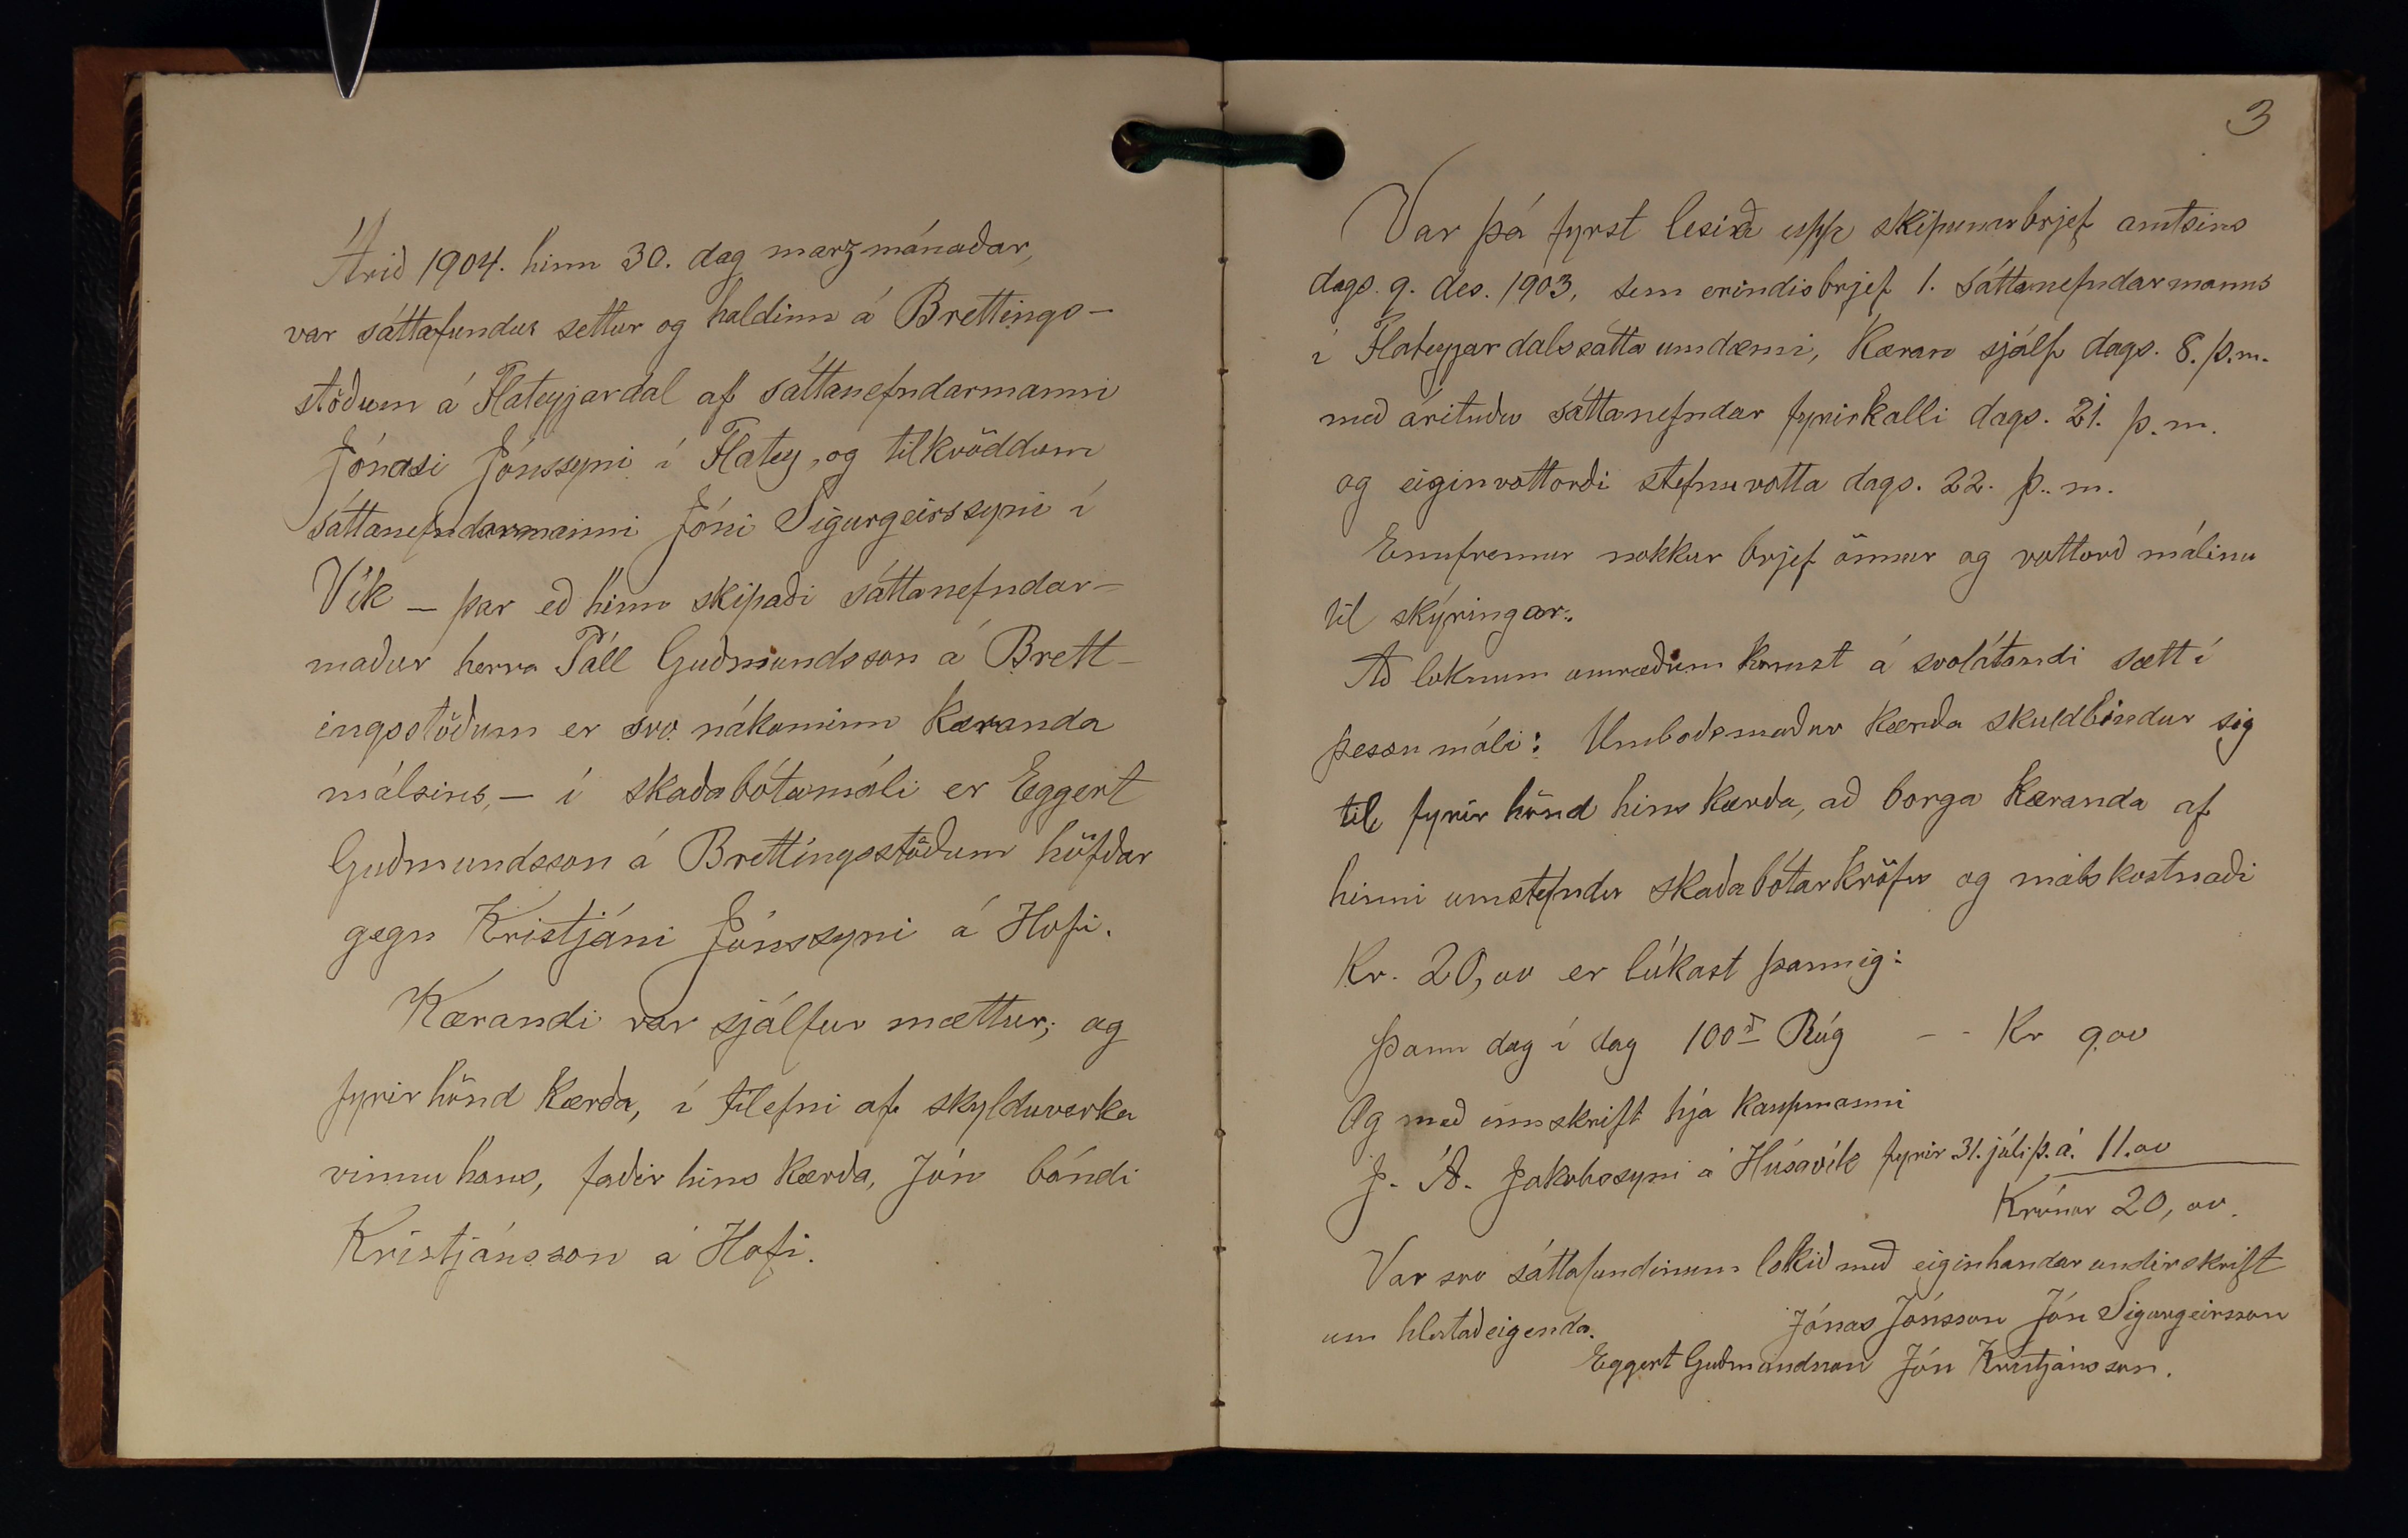 Árið 1904. hinn 30. dag marzmánaðar,
var sáttafundur settur og haldinn á Brettings-
stöðum á Flateyjardal af sáttanefndarmanni
Jónasi Jónssyni í Flatey, og tilkvöddum
sáttanefndarmanni Jóni Sigurgeirssyni í
Vík — þar eð hinn skipaði sáttanefndar-
maður herra Páll Guðmundsson á Brett-
ingsstöðum er svo nákominn kæranda
málsins, — í skaðabótamáli er Eggert
Guðmundsson á Brettingsstöðum höfðar
gegn Kristjáni Jónssyni á Hofi.
Kærandi var sjálfur mættur; og
fyrir hönd kærða, í tilefni af skylduverka
vinnu hans, faðir hins kærða, Jón bóndi
Kristjánsson á Hofi.
3
Var þá fyrst lesið upp skipunarbrjef amtsins
dags. 9. des. 1903, sem erindisbrjef 1. sáttanefndarmanns
í Flateyjardalssáttaumdæmi, Kæran sjálf dags. 8. þ.m.
með árituðu sáttanefndar fyrirkalli dags. 21. þ.m.
og eiginvottorði stefnuvotta dags. 22. þ.m.
Ennfremur nokkur brjef önnur og vottorð málinu
til skýringar.
Að loknum umræðum komst á svolátandi sætt í
þessu máli: Umboðsmaður kærða skuldbindur sig
til fyrir hönd hins kærða, að borga kæranda af
hinni umstefndu skaðabótarkröfu og málskostnaði
Kr. 20,00 er lúkast þannig:
Þann dag í dag 100 Rúg - - Kr 9.00
Og með innskrift hjá kaupmanni
J. Á. Jakobssyni á Húsavík fyrir 31. júli þ.á. 11.00
Krónur 20,00.
Var svo sáttafundinum lokið með eiginhandar undirskrift
um hlutaðeigenda. Jónas Jónsson Jón Sigurgeirsson
Eggert Guðmundsson Jón Kristjánsson.